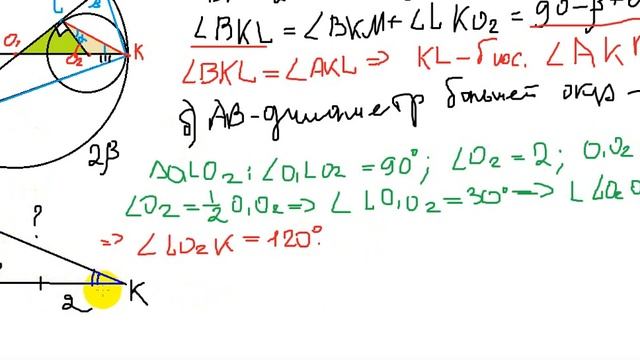 ∠BKL = ∠BKM + ∠LKO₂ = 90 - β +
∠BKL = ∠AKL ⇒ KL - бис. ∠AK
б) AB - диаметр большей окр -
ΔO₁LO₂: ∠O₁LO₂ = 90°; LO₂ = 2; O₁O₂
LO₂ = ½ O₁O₂ ⇒ ∠LO₁O₂ = 30° ⇒ ∠LO₂O
⇒ ∠LO₂K = 120°.
L
O₁
O₂
K
2β
?
2
K